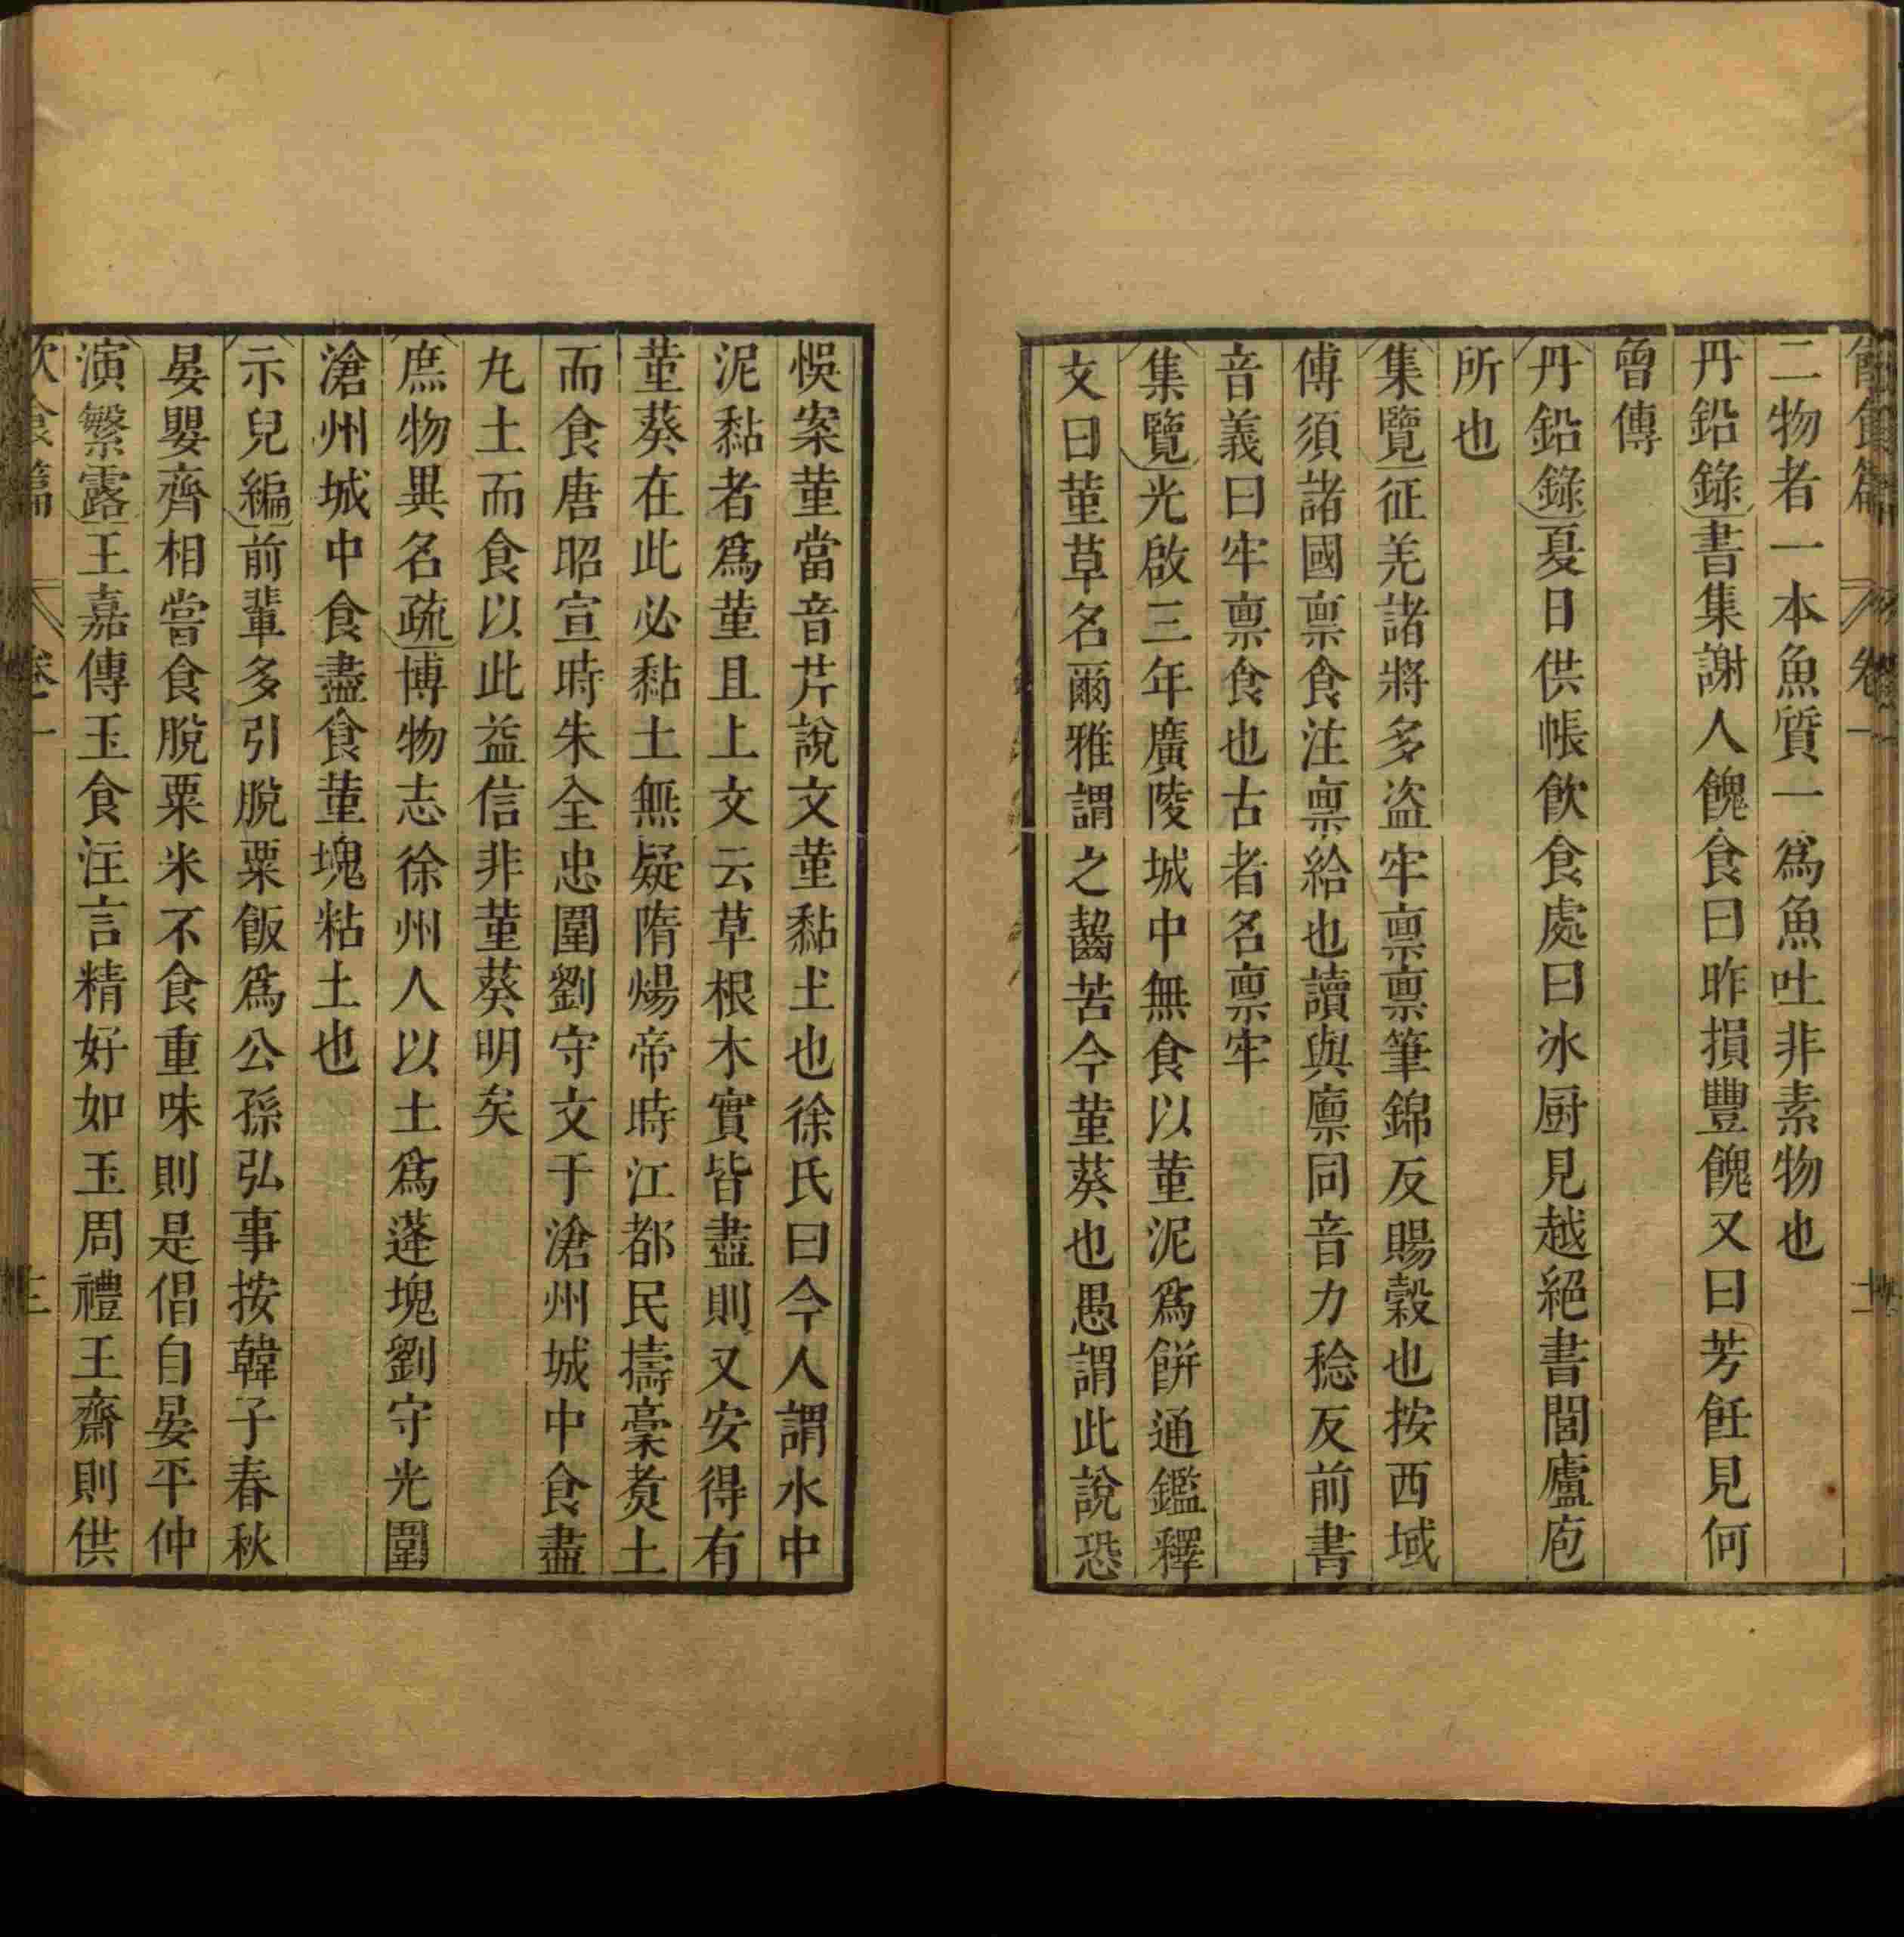 二物者一本魚質一爲魚吐非素物也
丹鉛錄書集謝人餽食曰昨損豐餽又曰芳飪見何
曾傳
丹鉛錄夏日供帳飲食處曰冰厨見越絕書闔廬庖
所也
集覽征羌諸將多盗牢禀禀筆錦反賜穀也按西域
傅須諸國禀食注禀給也讀與廪同音力稔反前書
音義曰牢禀食也古者名禀牢
集覽光啟三年廣陵城中無食以堇泥爲餅通鑑釋
文曰堇草名爾雅謂之齧苦今堇葵也愚謂此說恐
悞案堇當音芹說文堇黏土也徐氏曰今人謂水中
泥黏者爲堇且上文云草根木實皆盡則又安得有
堇葵在此必黏土無疑隋煬帝時江都民擣藁煑土
而食唐昭宣時朱全忠圍劉守文于滄州城中食盡
丸土而食以此益信非堇葵明矣
庶物異名疏博物志徐州人以土爲蓬塊劉守光圍
滄州城中食盡食堇塊粘土也
示兒編前輩多引脫粟飯爲公孫弘事按韓子春秋
晏嬰齊相嘗食脫粟米不食重味則是倡自晏平仲
演繁露王嘉傳玉食注言精好如玉周禮王齋則供
飲食篇 卷一 三